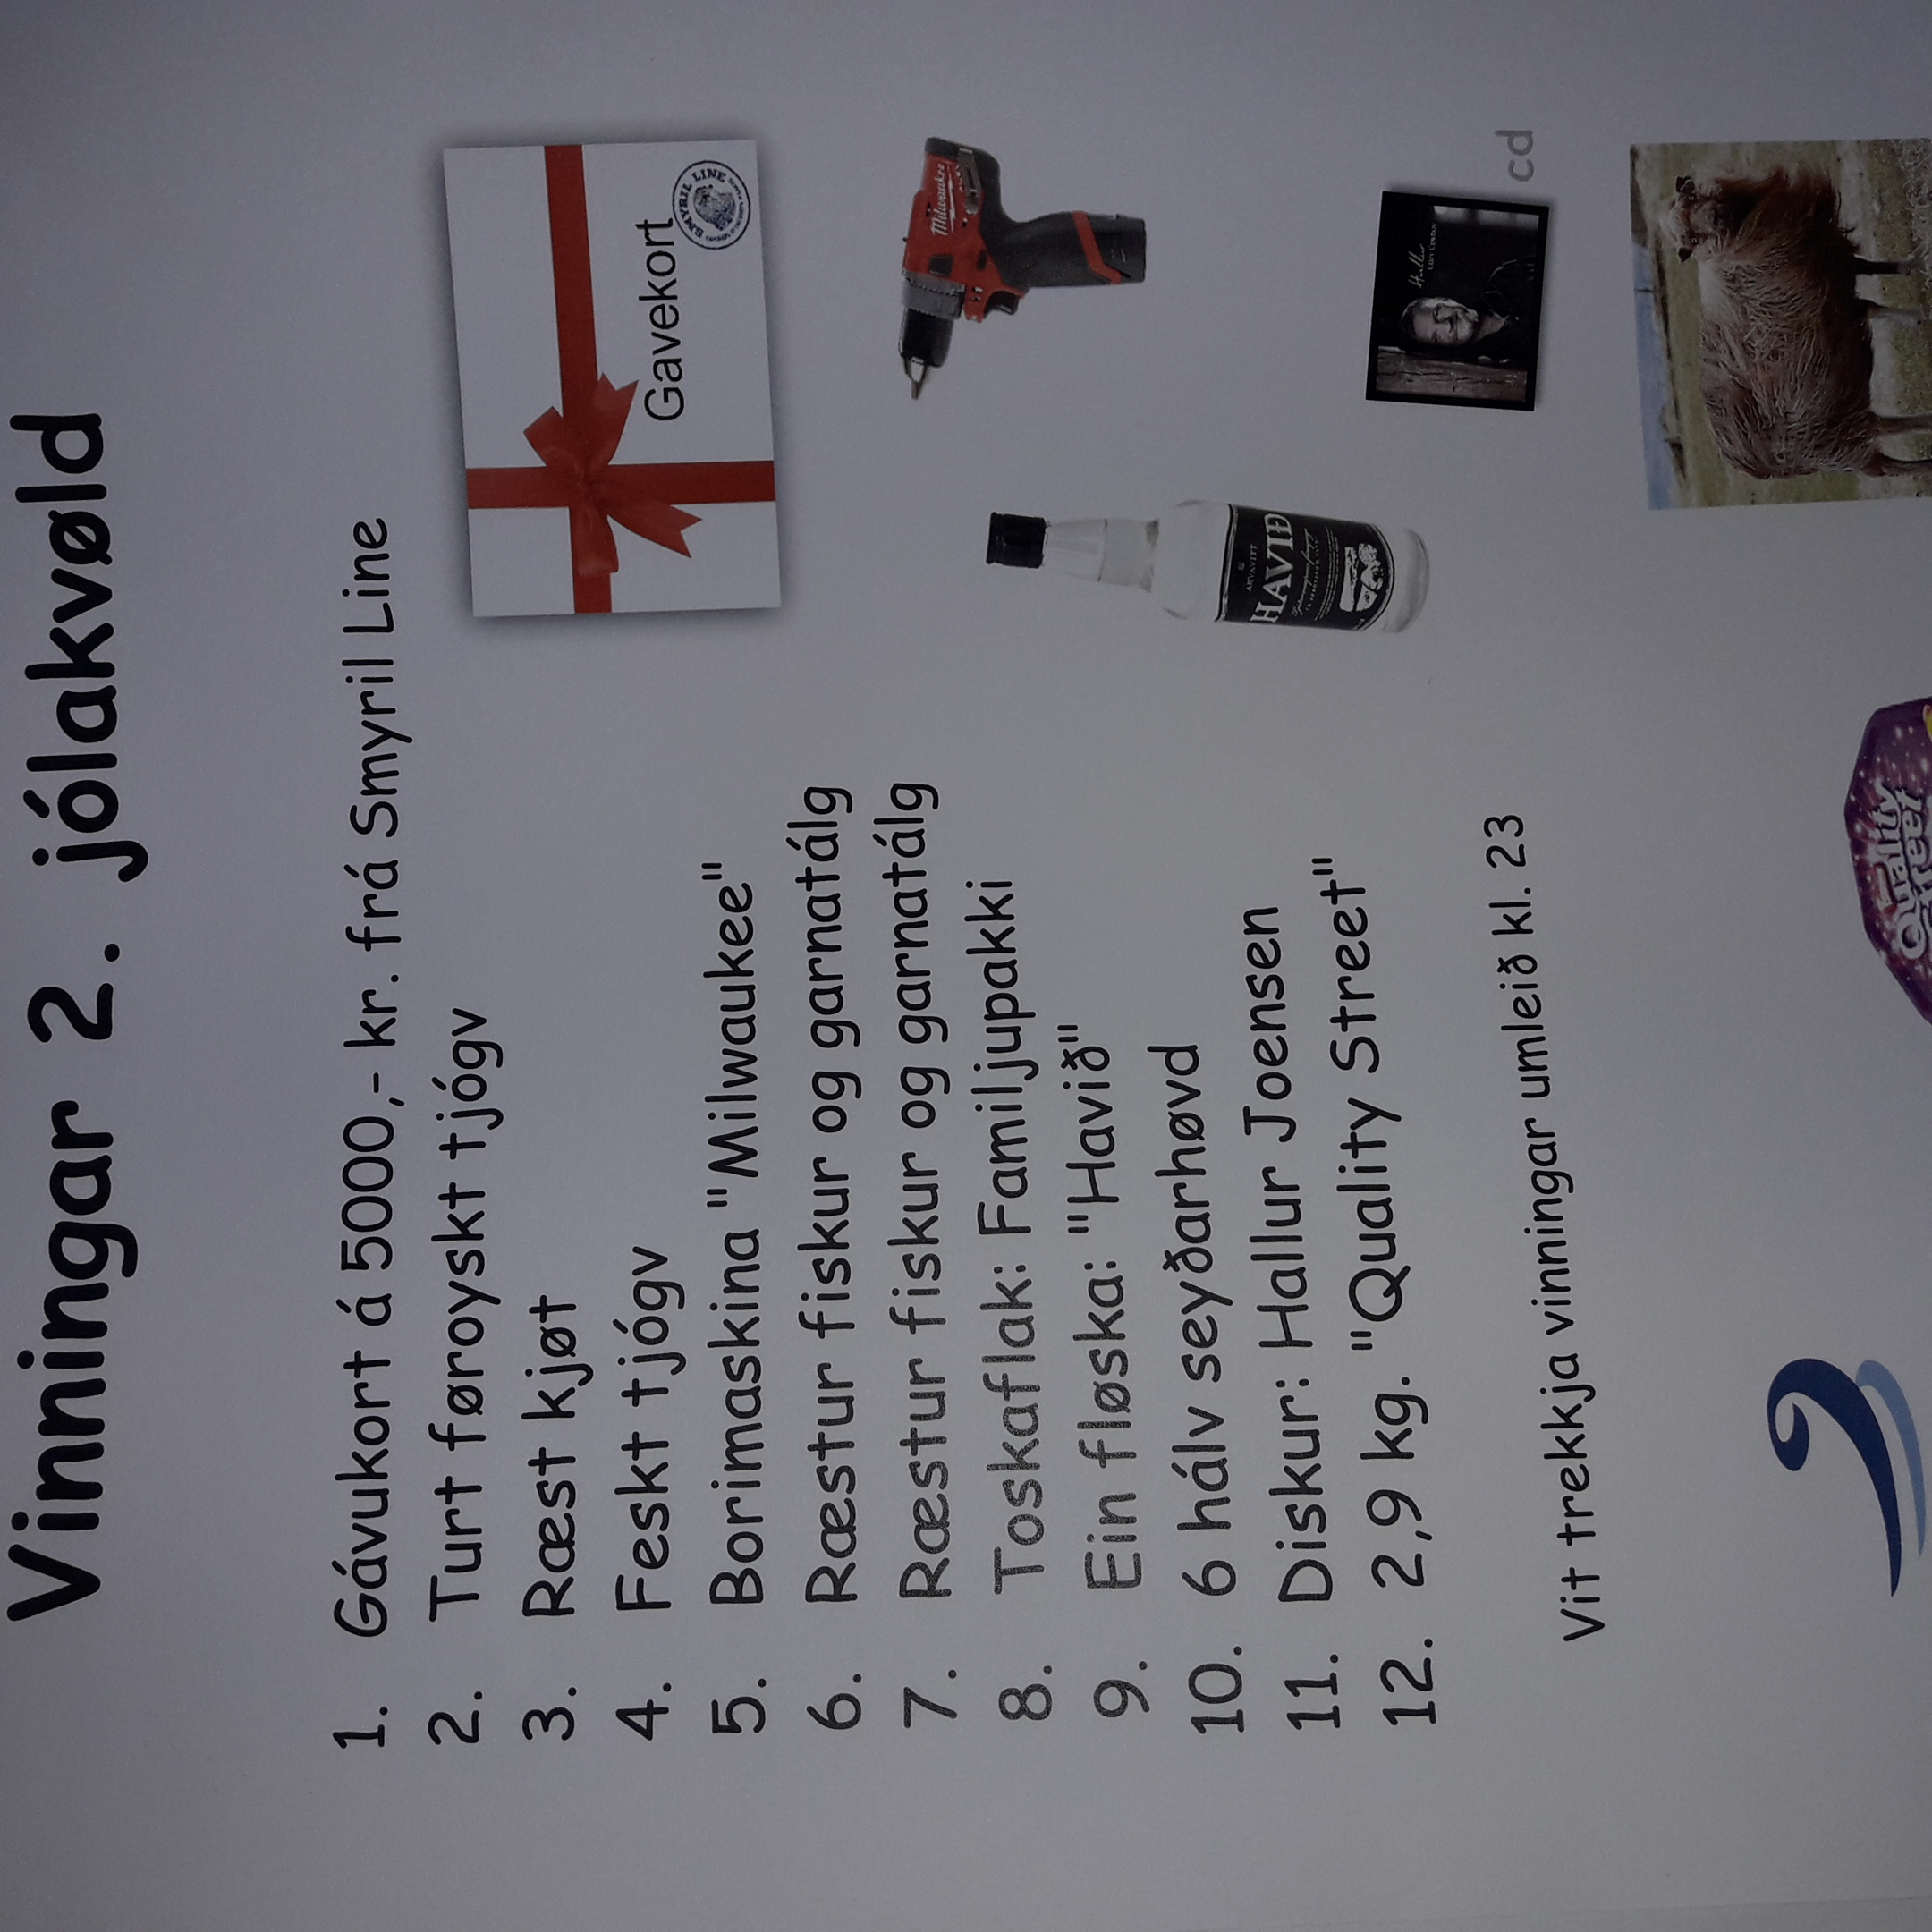 Vinningar 2. jólakvøld
1. Gávukort á 5000,- kr. frá Smyril Line
2. Turt føroyskt tjógv
3. Ræst kjøt
4. Feskt tjógv
5. Borimaskina "Milwaukee"
6. Ræstur fiskur og garnatálg
7. Ræstur fiskur og garnatálg
8. Toskaflak: Familjupakki
9. Ein fløska: "Havið"
10. 6 hálv seyðarhøvd
11. Diskur: Hallur Joensen
12. 2,9 kg. "Quality Street"
Vit trekkja vinningar umleið kl. 23
Gavekort
SMYRIL LINE
Milwaukee
AKVAVITT
HAVIÐ
Hallur
cd
Quality
Street